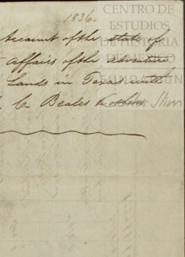 1836.
CENTRO DE
ESTUDIOS
DE HISTORIA
Account of the state of
Affairs of the adventure
Lands in Texas with
C Beales &